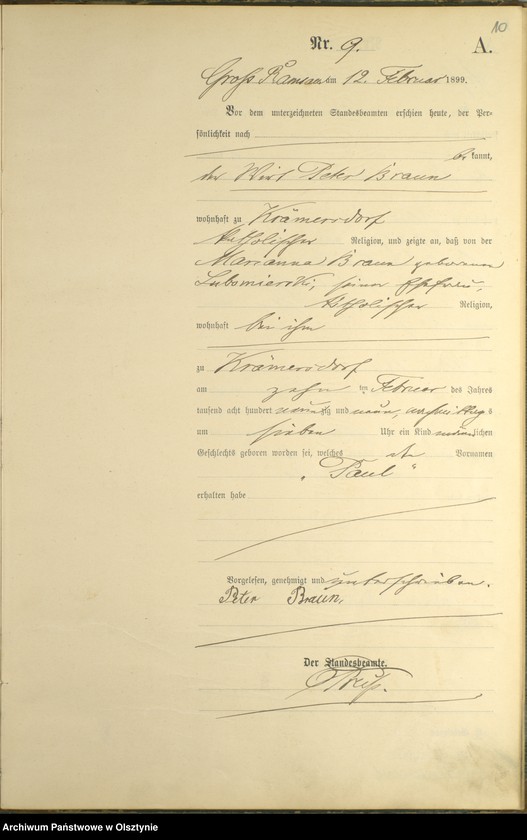 10
Nr. 9. A.
Gross Ramsau am 12. Februar 1899.
Vor dem unterzeichneten Standesbeamten erschien heute, der Per-
sönlichkeit nach
bekannt,
der Wirt Peter Braun
wohnhaft zu Krämersdorf
katholischer Religion, und zeigte an, daß von der
Marianna Braun geborenen
Lubomierski, seiner Ehefrau,
katholischer Religion,
wohnhaft bei ihm
zu Krämersdorf
am zehn ten Februar des Jahres
tausend acht hundert neunzig und neun, nachmittags
um sieben Uhr ein Kind männlichen
Geschlechts geboren worden sei, welches Vornamen
„Paul“
erhalten habe
Vorgelesen, genehmigt und unterschrieben.
Peter Braun,
Der Standesbeamte.
Archiwum Państwowe w Olsztynie